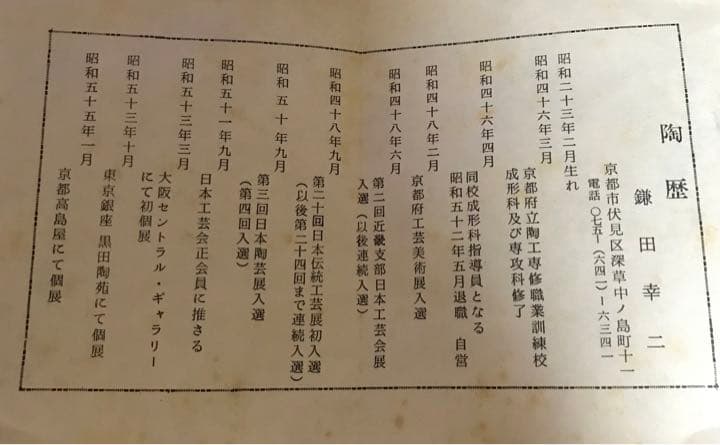 陶歴
鎌田幸二
京都市伏見区深草中ノ島町十一
電話 〇七五ー(六四二)ー六三四一
昭和二十三年二月生れ
昭和四十六年三月
京都府立陶工専修職業訓練校
成形科及び専攻科修了
昭和四十六年四月
同校成形科指導員となる
昭和五十二年五月退職 自営
昭和四十八年二月
京都府工芸美術展入選
昭和四十八年六月
第二回近畿支部日本工芸会展
入選(以後連続入選)
昭和四十八年九月
第二十回日本伝統工芸展初入選
(以後第二十四回まで連続入選)
昭和五十年九月
第三回日本陶芸展入選
(第四回入選)
昭和五十一年九月
日本工芸会正会員に推さる
昭和五十三年三月
大阪セントラル・ギャラリー
にて初個展
昭和五十三年十月
東京銀座 黒田陶苑にて個展
昭和五十五年一月
京都高島屋にて個展